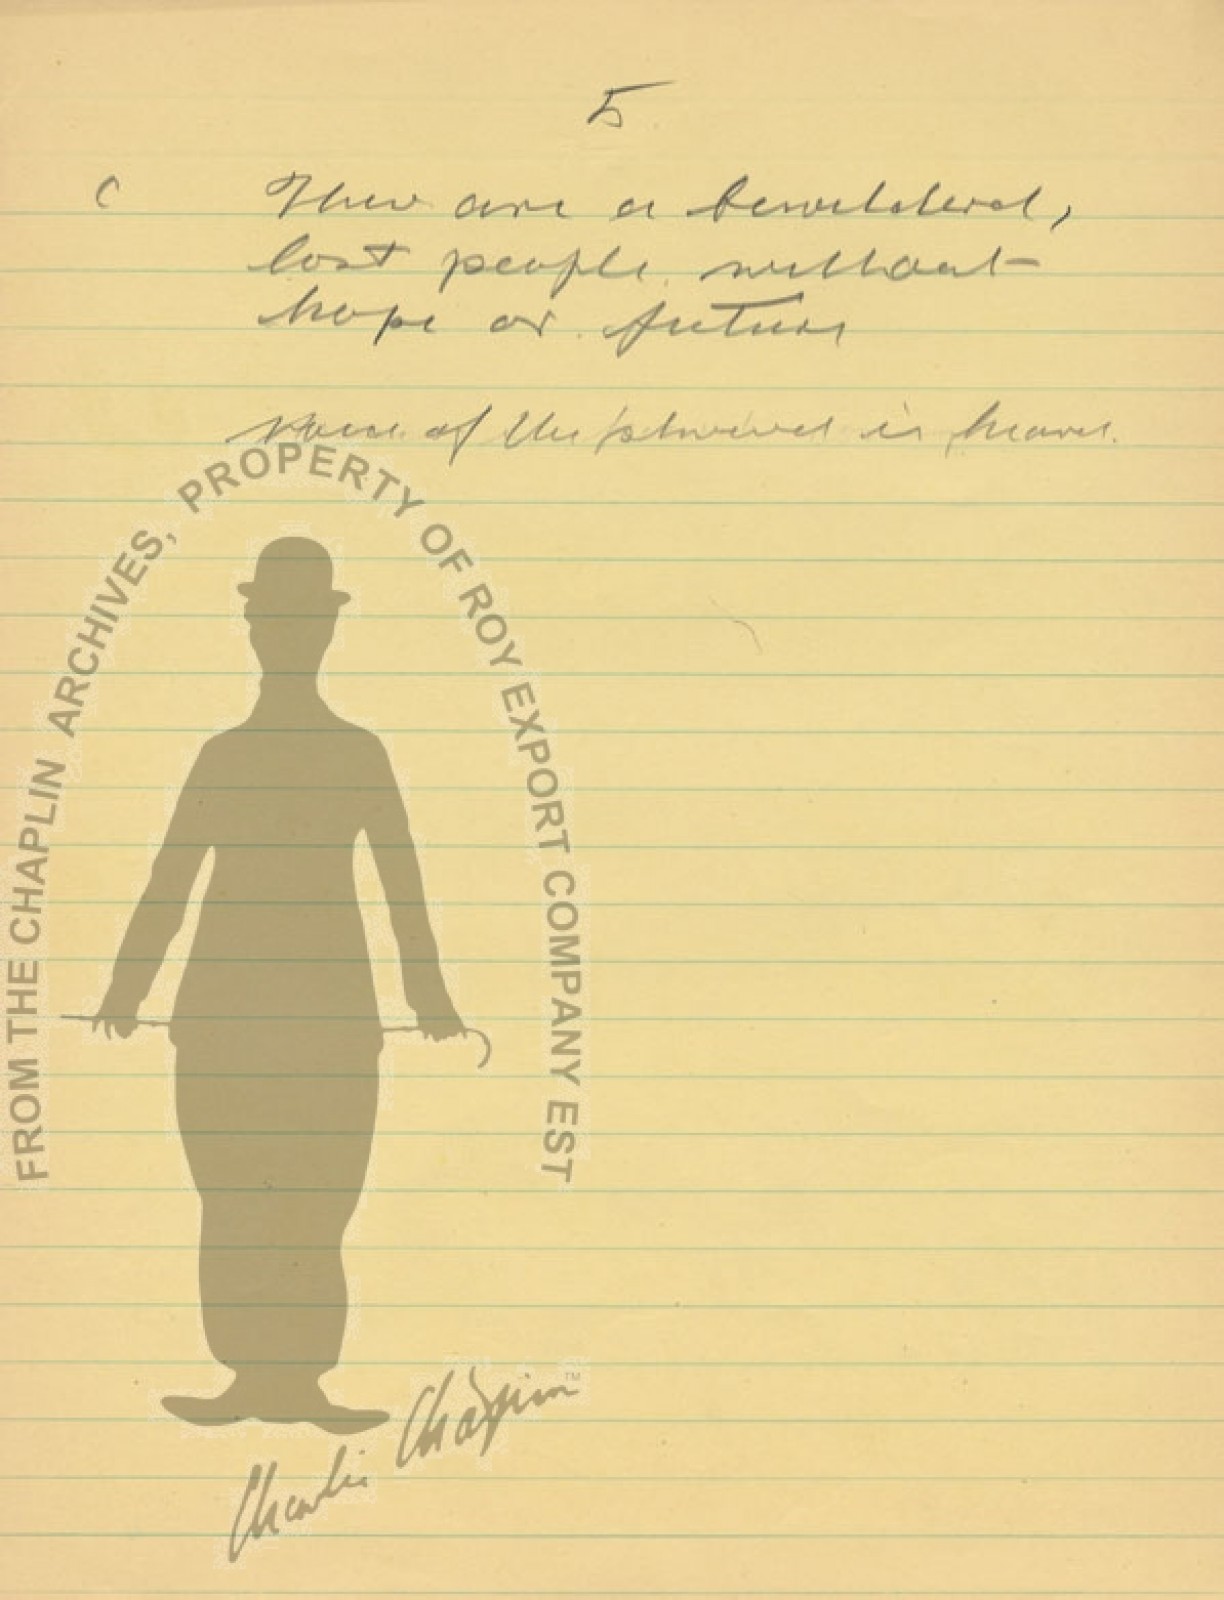 5
C They are a bewildered,
lost people without
hope or future
voice of the is heard.
FROM THE CHAPLIN ARCHIVES, PROPERTY OF ROY EXPORT COMPANY EST
Charlie Chaplin™